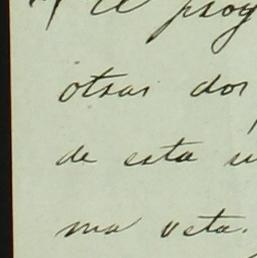 el proy
otras dos
de esta u
ma veta.